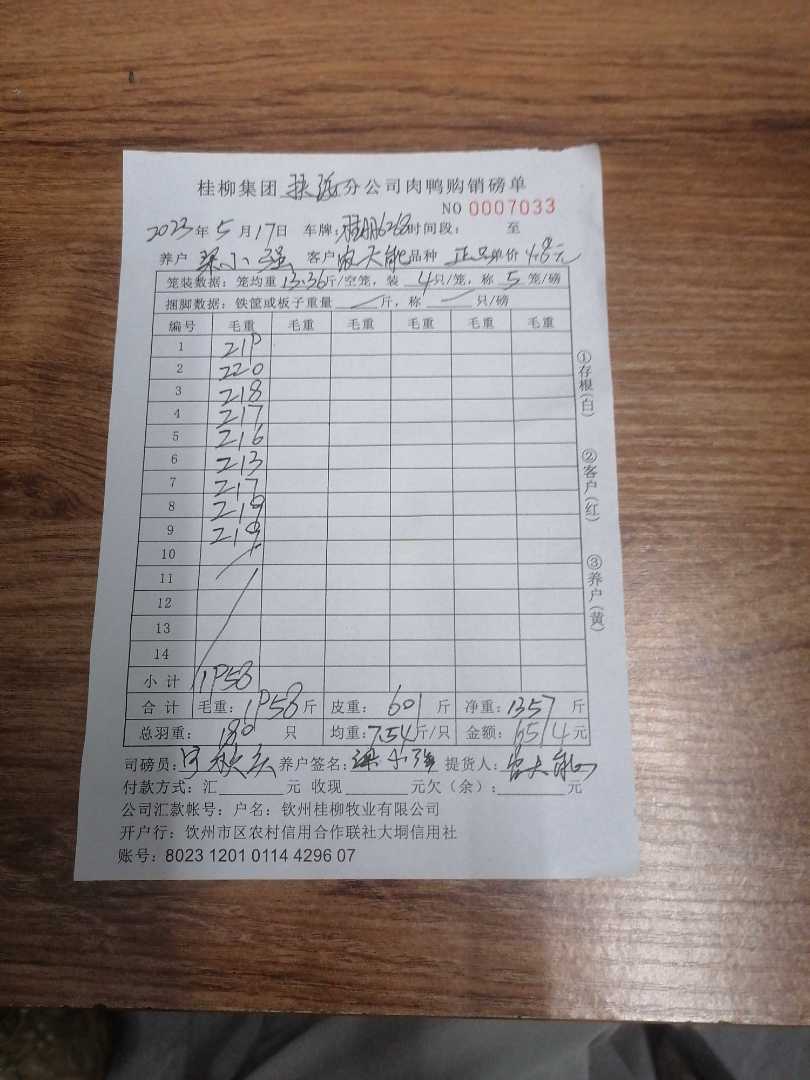 桂柳集团 分公司肉鸭购销磅单
NO 0007033
2023年5月17日 车牌: 时间段: 至
养户 梁小强 客户 品种 正品 单价 4.8元
笼装数据:笼均重13.36斤/空笼,装 4只/笼,称 5 笼/磅
捆脚数据:铁筐或板子重量 / 斤,称 / 只/磅
编号 毛重 毛重 毛重 毛重 毛重 毛重
1 219
2 220
3 218
4 217
5 216
6 213
7 217
8 219
9 219
10
11
12
13
14
小计 1958
合计 毛重:1958斤 皮重:601斤 净重:1357斤
总羽重:180只 均重:7.54斤/只 金额:6514元
司磅员: 养户签名:梁小强 提货人:
付款方式:汇 元 收现 元欠(余): 元
公司汇款帐号:户名:钦州桂柳牧业有限公司
开户行:钦州市区农村信用合作联社大垌信用社
账号:8023 1201 0114 4296 07
①存根(白)
②客户(红)
③养户(黄)